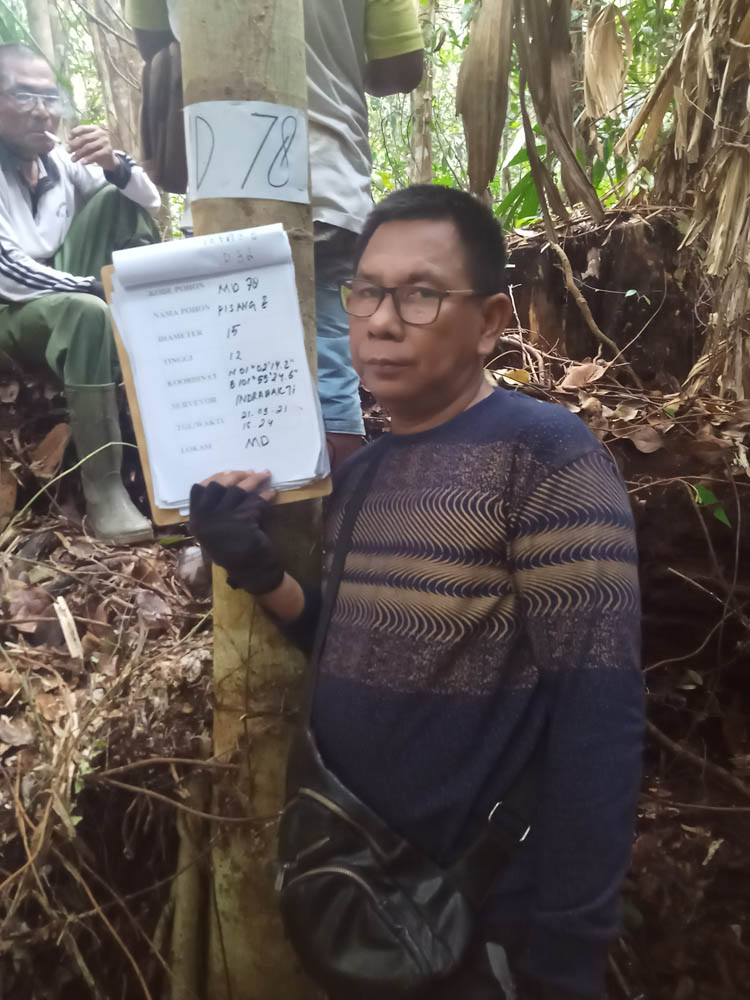 D 78
D 32
KODE POHON MD 78
NAMA POHON PISANG 2
DIAMETER 15
TINGGI 12
KOORDINAT N 01°02'14.2"
E 101°59'24.6"
SURVEYOR INDRABAKTI
TGL/WAKTU 21.09.21
15.24
LOKASI MD